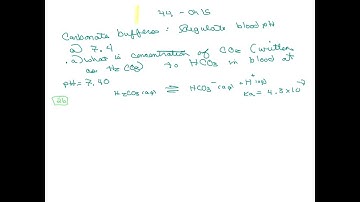 49 - Ch 15
Carbonate buffers: Regulate blood pH
a) 7.4
a) What is concentration of CO2 (written
as H2CO3) to HCO3 in blood at
pH = 7.40
H2CO3 (aq) ⇌ HCO3⁻ (aq) + H⁺ (aq)
Ka = 4.3 x 10⁻⁷